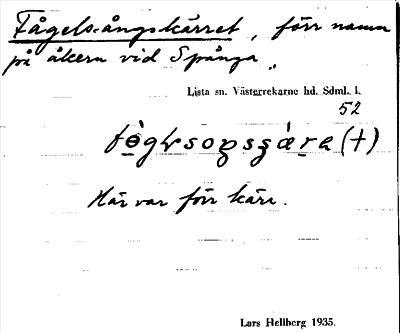 Fågelsångskärret, förr namn
på åkern vid Spånga.
Lista sn. Västerrekarne hd. Sdml. l.
52
(†)
Här var förr kärr.
Lars Hellberg 1935.